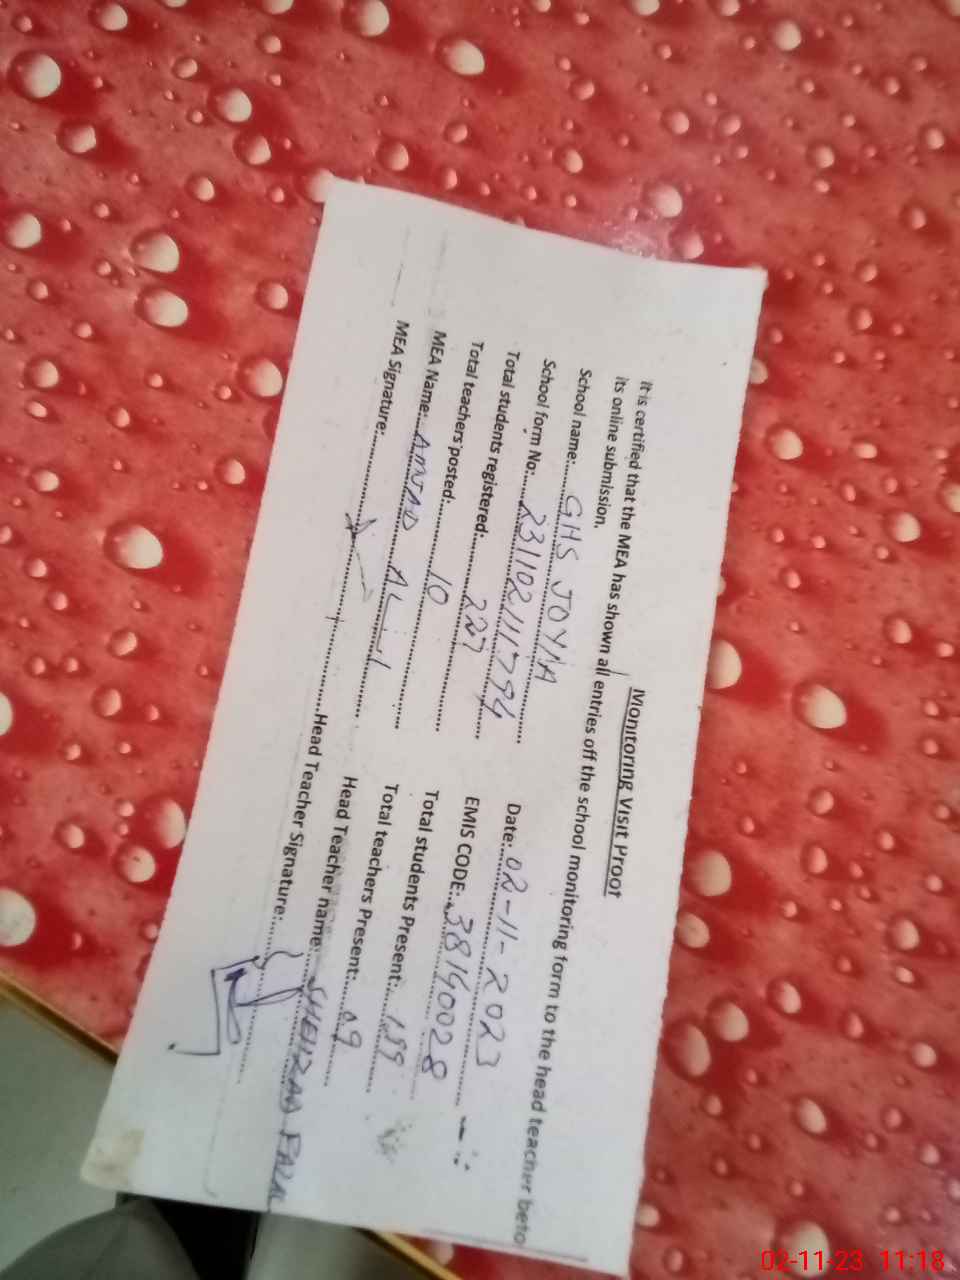 Monitoring Visit Proof
It is certified that the MEA has shown all entries off the school monitoring form to the head teacher befo
its online submission.
School name:..... GHS JOYIA
Date:.. 02-11-2023
School form No:..... 231102111794
EMIS CODE:.. 38140028
Total students registered:........ 227
Total students Present:.... 189
Total teachers posted:......... 10
Total teachers Present:.... 09
MEA Name:.. AMJAD ALI
Head Teacher name: SHEHZAD FAZAL
MEA Signature:..............................
Head Teacher Signature:..............................
02-11-23 11:18